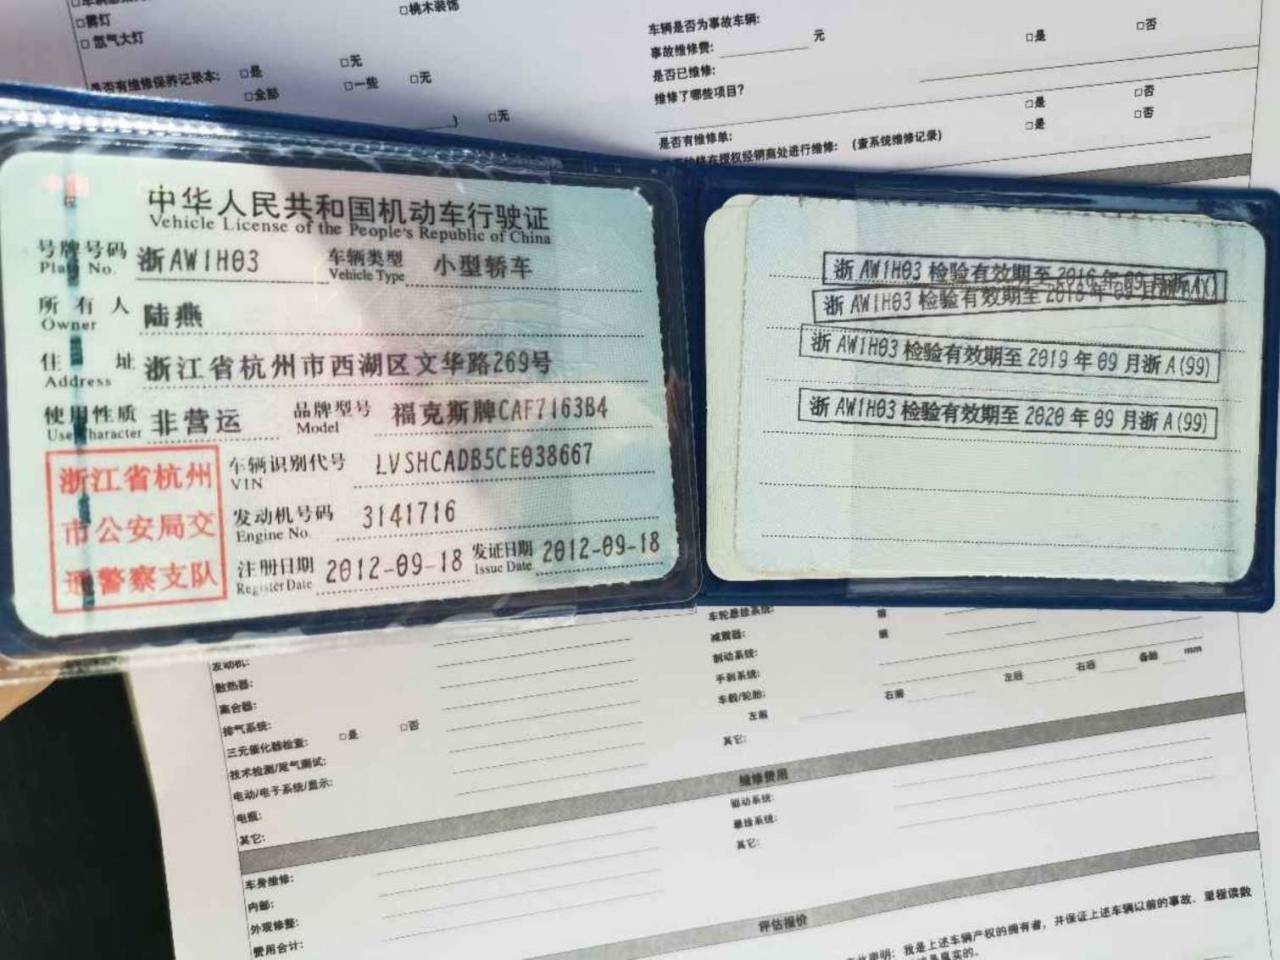 □雾灯
□ 氙气大灯
□桃木装饰
是否有维修保养记录本: □是 □无
□全部 □一些 □无
) □无
车辆是否为事故车辆: □是 □否
事故维修费: 元
是否已维修:
维修了哪些项目?
□是 □否
是否有维修单: □是 □否
在授权经销商处进行维修: (查系统维修记录)
中华人民共和国机动车行驶证
Vehicle License of the People's Republic of China
号牌号码 浙AW1H03 车辆类型 小型轿车
Plate No. Vehicle Type
所有人 陆燕
Owner
住址 浙江省杭州市西湖区文华路269号
Address
使用性质 非营运 品牌型号 福克斯牌CAF7163B4
Use Character Model
车辆识别代号 LVSHCADB5CE038667
VIN
发动机号码 3141716
Engine No.
注册日期 2012-09-18 发证日期 2012-09-18
Register Date Issue Date
浙江省杭州
市公安局交
通警察支队
浙 AW1H03 检验有效期至 2016 年 09 月
浙 AW1H03 检验有效期至
浙 AW1H03 检验有效期至 2019 年 09 月浙 A(99)
浙 AW1H03 检验有效期至 2020 年 09 月浙 A(99)
发动机:
散热器:
离合器:
排气系统:
三元催化器检查: □是 □否
技术检测/尾气测试:
电动/电子系统/显示:
电瓶:
其它:
车轮悬挂系统:
减震器:
制动系统:
手刹系统:
车毂/轮胎: 左前 右前 左后 右后 备胎 mm
其它:
维修费用
车身维修:
内部:
外观修整:
费用合计:
驱动系统:
悬挂系统:
其它:
评估报价
声明: 我是上述车辆产权的拥有者, 并保证上述车辆以前的事故、里程读数
是真实的。